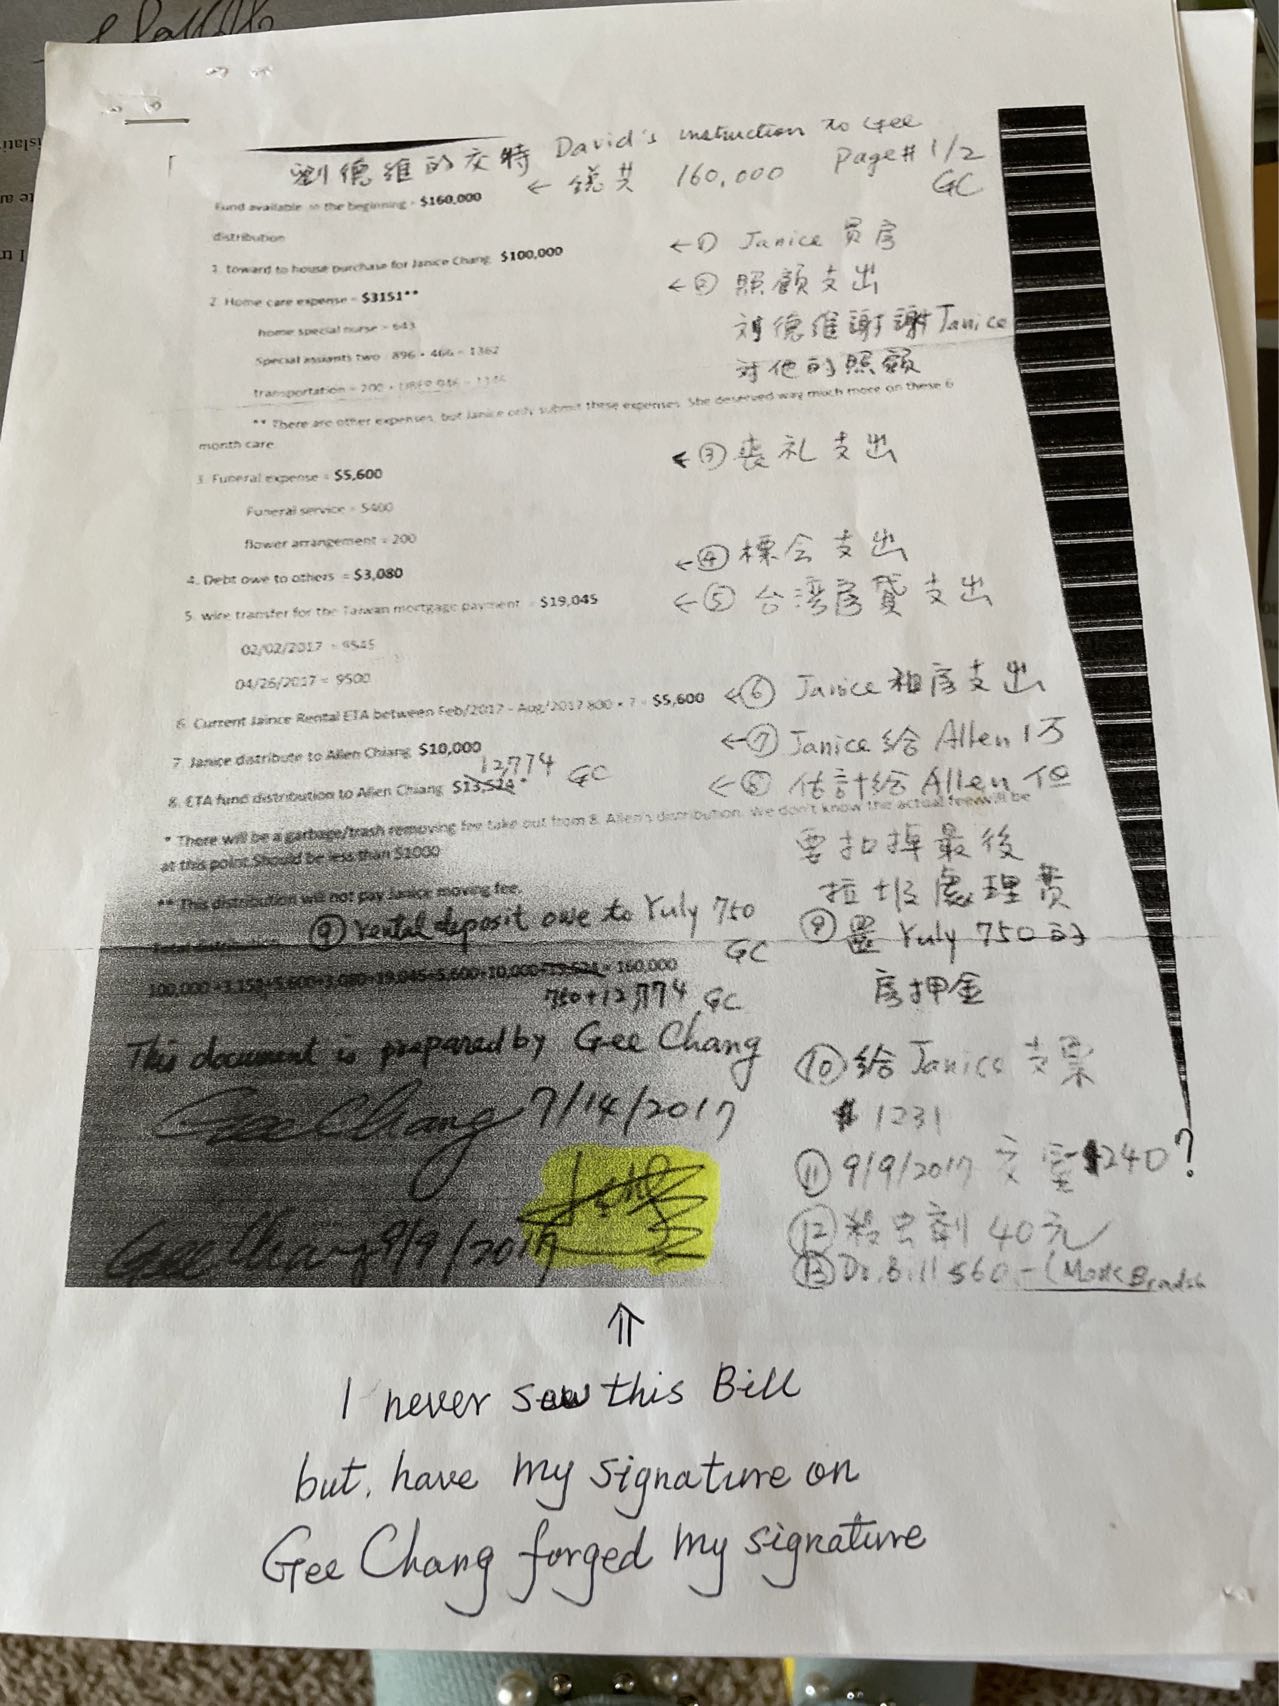 劉德維的交待 David's instruction to Gee
← 錢共 160,000 Page# 1/2
GC
Fund available in the beginning - $160,000
distribution
1. toward to house purchase for Janice Chang $100,000
←① Janice 買房
2. Home care expense - $3151**
←② 照顧支出
home special nurse - 643
刘德維謝謝Janice
Special assiants two 896 + 466 = 1362
对他的照顧
transportation = 200 + UBER 946 = 1146
** There are other expenses, but Janice only submit these expenses. She deserved way much more on these 6
month care
←③ 喪礼支出
3. Funeral expense = $5,600
Funeral service = 5400
flower arrangement = 200
←④ 標会支出
4. Debt owe to others = $3,080
5. wire transfer for the Taiwan mortgage payment = $19,045
←⑤ 台湾房貸支出
02/02/2017 = 9545
04/26/2017 = 9500
6. Current Jaince Rental ETA between Feb/2017 - Aug/2017 800 * 7 = $5,600
←⑥ Janice 租房支出
7. Janice distribute to Allen Chiang $10,000
←⑦ Janice 給 Allen 1万
12,774 GC
8. ETA fund distribution to Allen Chiang $13,524*
←⑧ 估計給 Allen 但
* There will be a garbage/trash removing fee take out from 8. Allen's distribution. We don't know the actual fee will be
at this point. Should be less than $1000
要扣掉最後
** This distribution will not pay Janice moving fee.
垃圾處理費
⑨ rental deposit owe to Yuly 750
GC
⑨ 還 Yuly 750 的
房押金
Total distribution
100,000+3,151+5,600+3,080+19,045+5,600+10,000+13,524= 160,000
750+12,774 GC
This document is prepared by Gee Chang
⑩ 給 Janice 支票
Gee Chang 7/14/2017
$1231
⑪ 9/9/2017 交 $240?
Gee Chang 9/9/2017
⑫ 殺虫剤 40元
⑬ Dr. Bill 560 - (Mark
⇑
I never saw this Bill
but, have my signature on
Gee Chang forged my signature